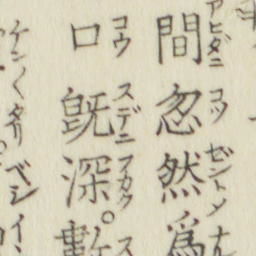 間忽然為
アヒダニコツゼントメナ
口既深數
コウスデニフカク。ス
ケンくタリ。ベシイ